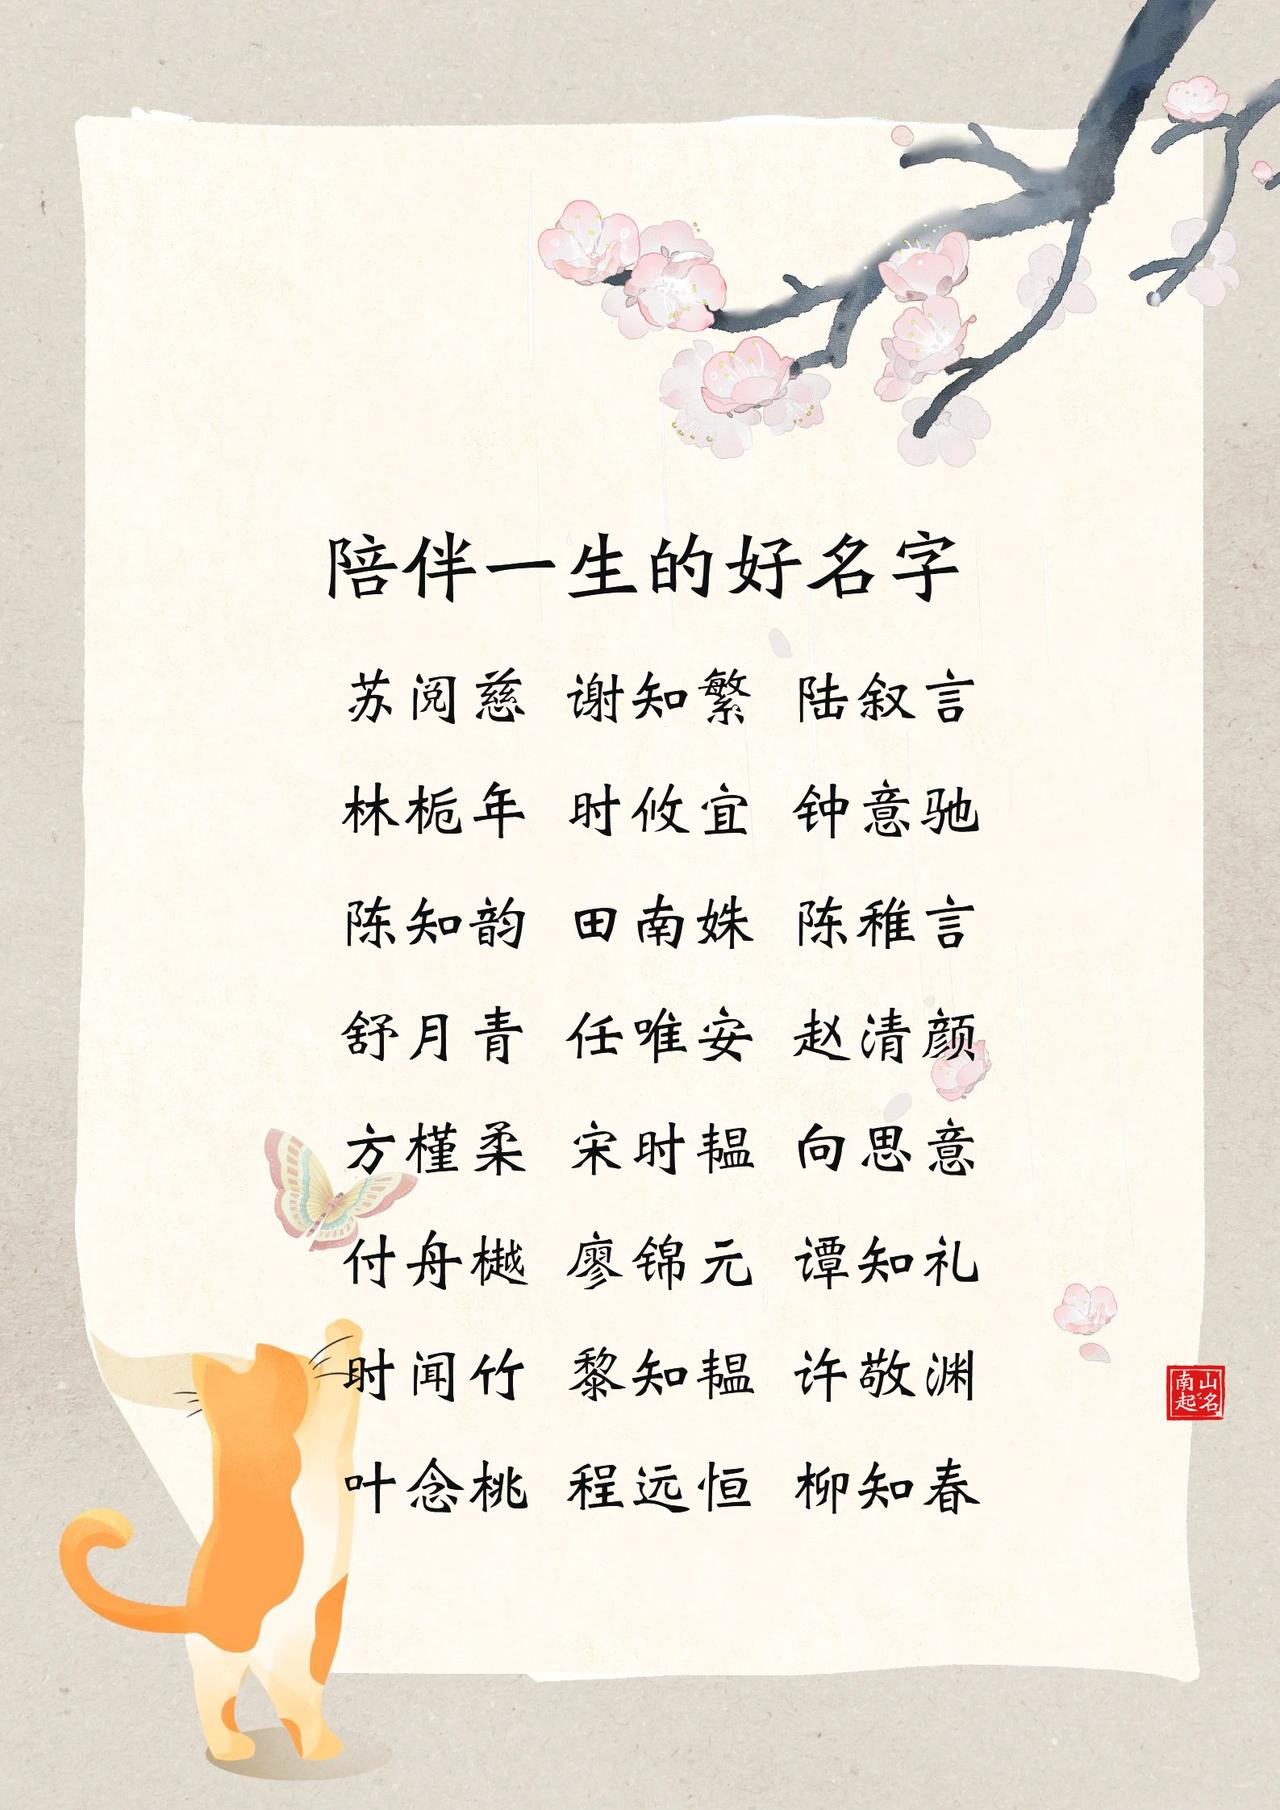 陪伴一生的好名字
苏阅慈 谢知繁 陆叙言
林栀年 时攸宜 钟意驰
陈知韵 田南姝 陈稚言
舒月青 任唯安 赵清颜
方槿柔 宋时韫 向思意
付舟樾 廖锦元 谭知礼
时闻竹 黎知韫 许敬渊
叶念桃 程远恒 柳知春
南山起名